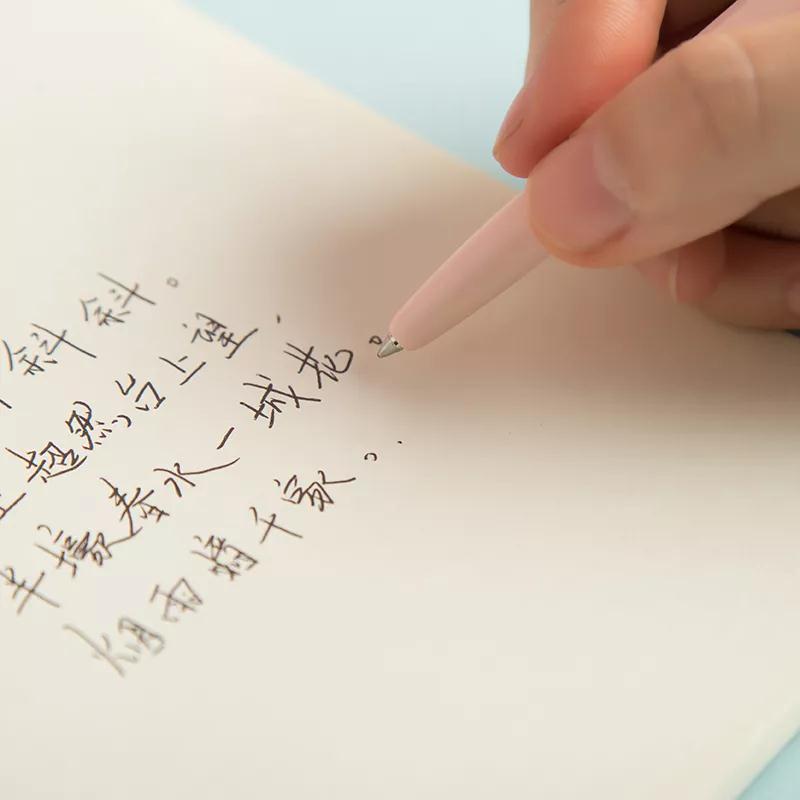 斜斜。
上超然台上望,
半壕春水一城花。
烟雨暗千家。